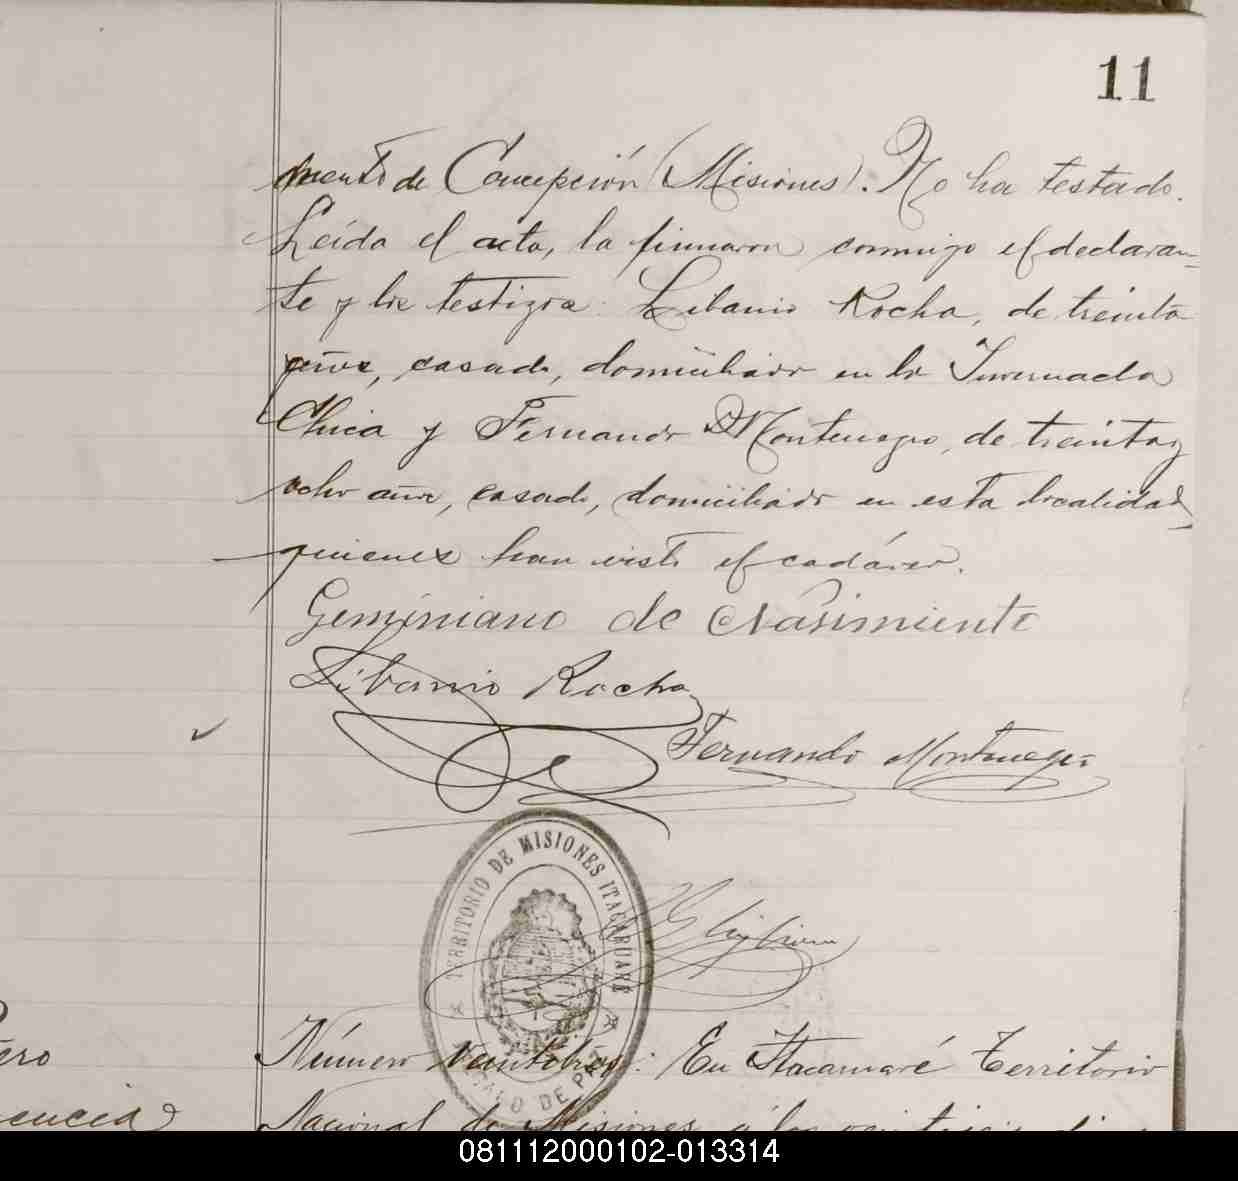 11
mento de Concepción (Misiones). No ha testado.
Leída el acta, la firmaron conmigo el declaran-
te y los testigos: Libanio Rocha, de treinta
años, casado, domiciliado en la Invernada
Chica y Fernando Montenegro, de treinta y
ocho años, casado, domiciliado en esta localidad,
quienes han visto el cadáver.
Geminiano de Nasimiento
Libanio Rocha
Fernando Montenegro
TERRITORIO DE MISIONES ITACARUARÉ
DE PAZ
Número veintidos: En Itacaruaré Territorio
Nacional de Misiones á los
081112000102-013314